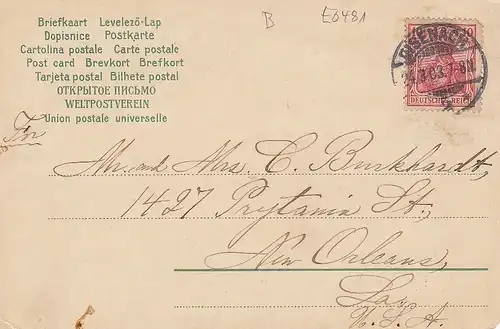 B E0481
Briefkaart Levelező-Lap
Dopisnice Postkarte
Cartolina postale Carte postale
Post card Brevkort Brefkort
Tarjeta postal Bilhete postal
ОТКРЫТОЕ ПИСЬМО
WELTPOSTVEREIN
Union postale universelle
10
EISENACH
24.3.03.7-8N
DEUTSCHES REICH
For
Mr. and Mrs. C. Burkhardt,
1427 Prytania St.,
New Orleans,
La.,
U.S.A.